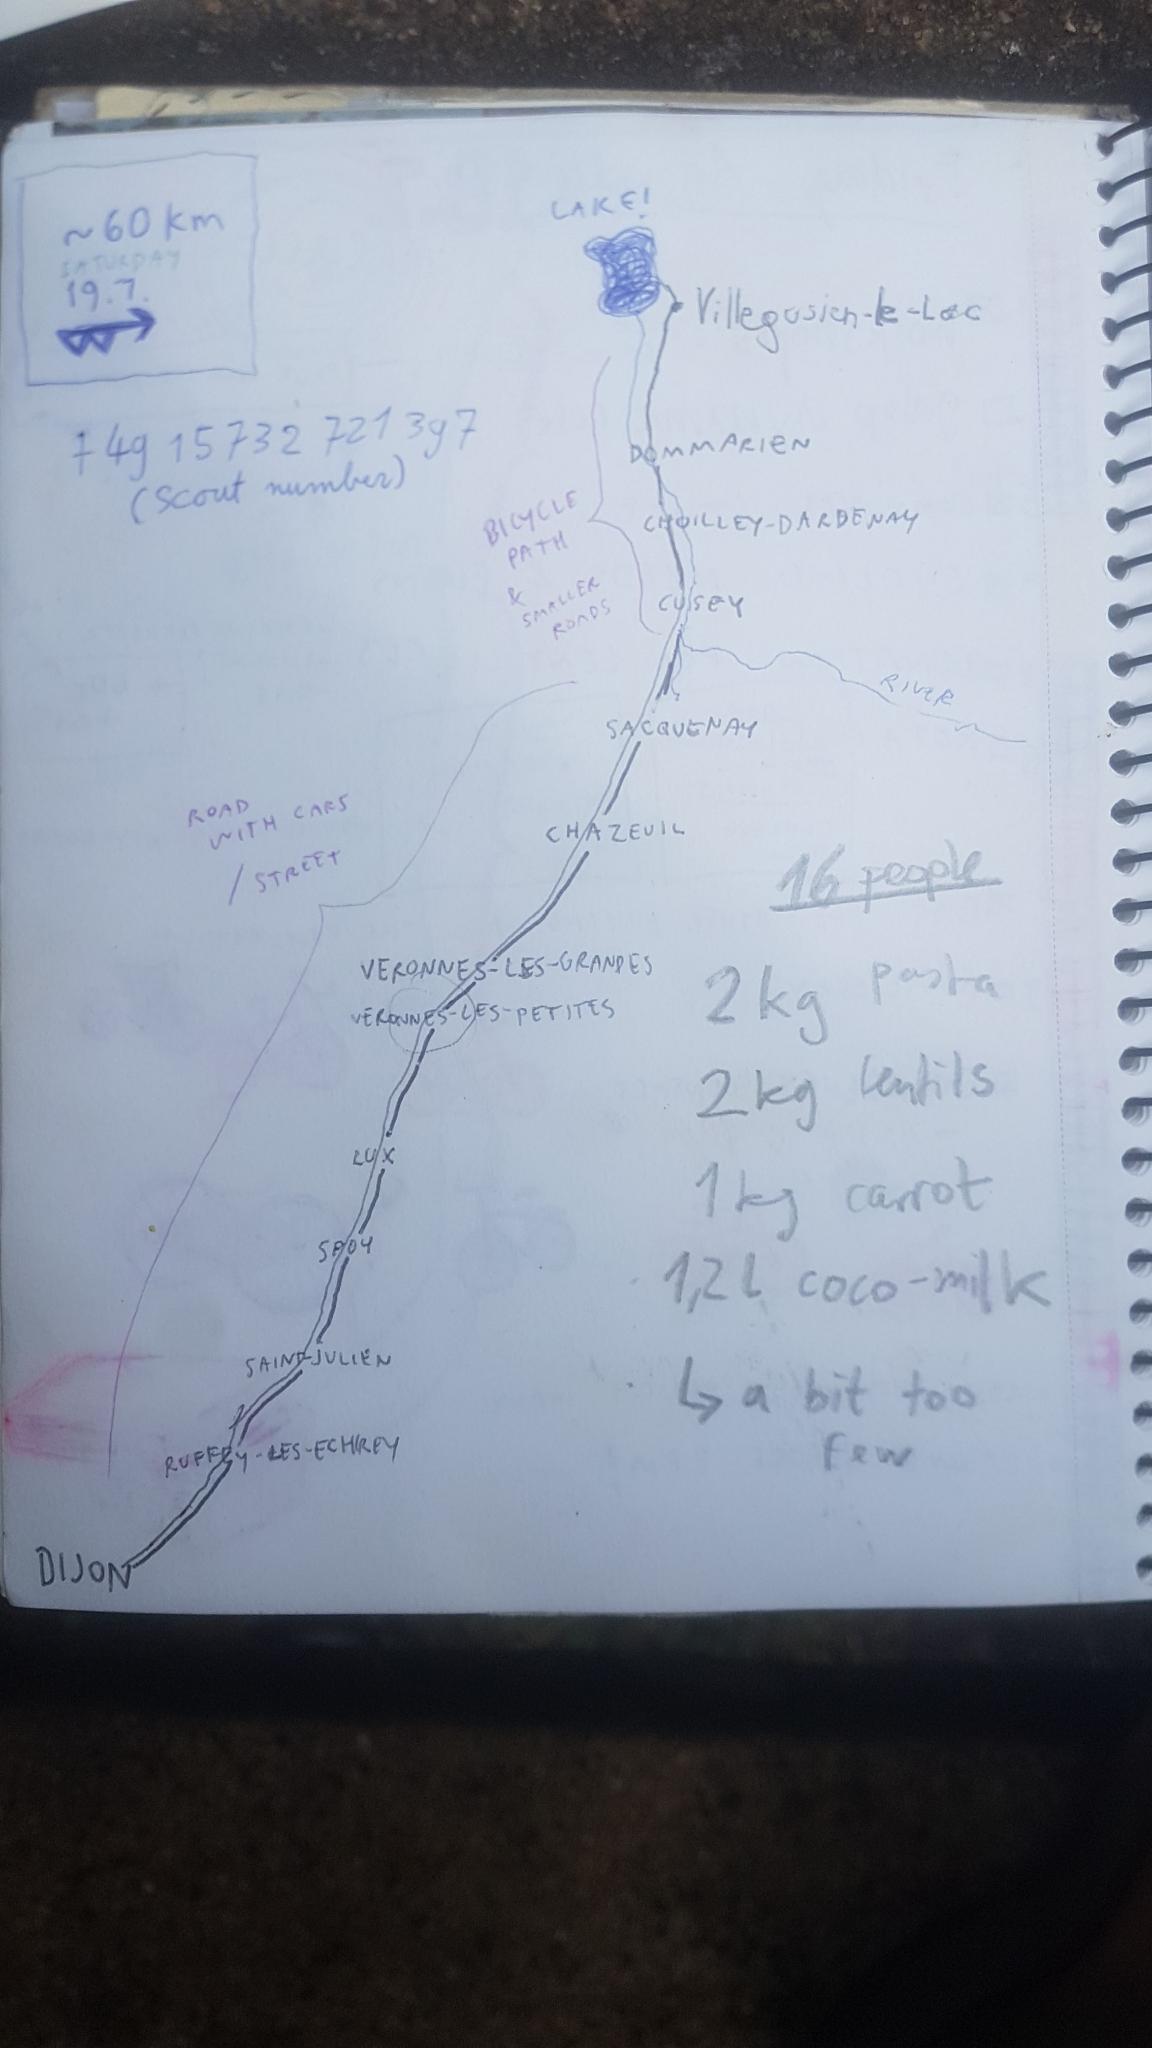 ~60 km
SATURDAY
19.7.
LAKE!
Villegusien-le-Lac
(scout number)
DOMMARIEN
BICYCLE
PATH
&
SMALLER
ROADS
CHOILLEY-DARDENAY
CUSEY
RIVER
SACQUENAY
ROAD
WITH CARS
/ STREET
CHAZEUIL
16 people
VERONNES-LES-GRANDES
2 kg pasta
VERONNES-LES-PETITES
2 kg lentils
LUX
1 kg carrot
SPOY
1,2 L coco-milk
SAINT-JULIEN
↳ a bit too
few
RUFFEY-LES-ECHREY
DIJON